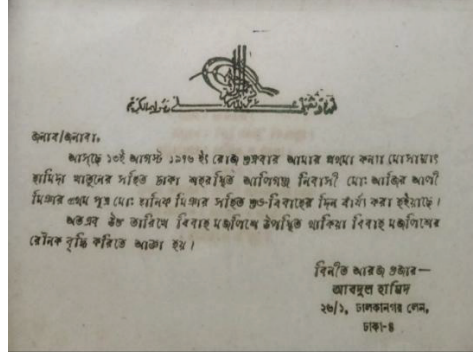 জনাব/জনাবা,
আসছে ১৩ই আগস্ট ১৯৭৬ ইং রোজ শুক্রবার আমার প্রথমা কন্যা মোসাম্মাৎ
হামিদা খাতুনের সহিত ঢাকা শহরস্থিত আলিগঞ্জ নিবাসী মোঃ আজির আলী
মিঞার প্রথম পুত্র মোঃ মানিক মিঞার সহিত শুভ-বিবাহের দিন ধার্য্য করা হইয়াছে।
অতএব উক্ত তারিখে বিবাহ মজলিশে উপস্থিত থাকিয়া বিবাহ মজলিশের
রৌনক বৃদ্ধি করিতে আজ্ঞা হয়।
বিনীত আরজ গুজার—
আবদুল হামিদ
২৬/১, ঢালকানগর লেন,
ঢাকা-৪